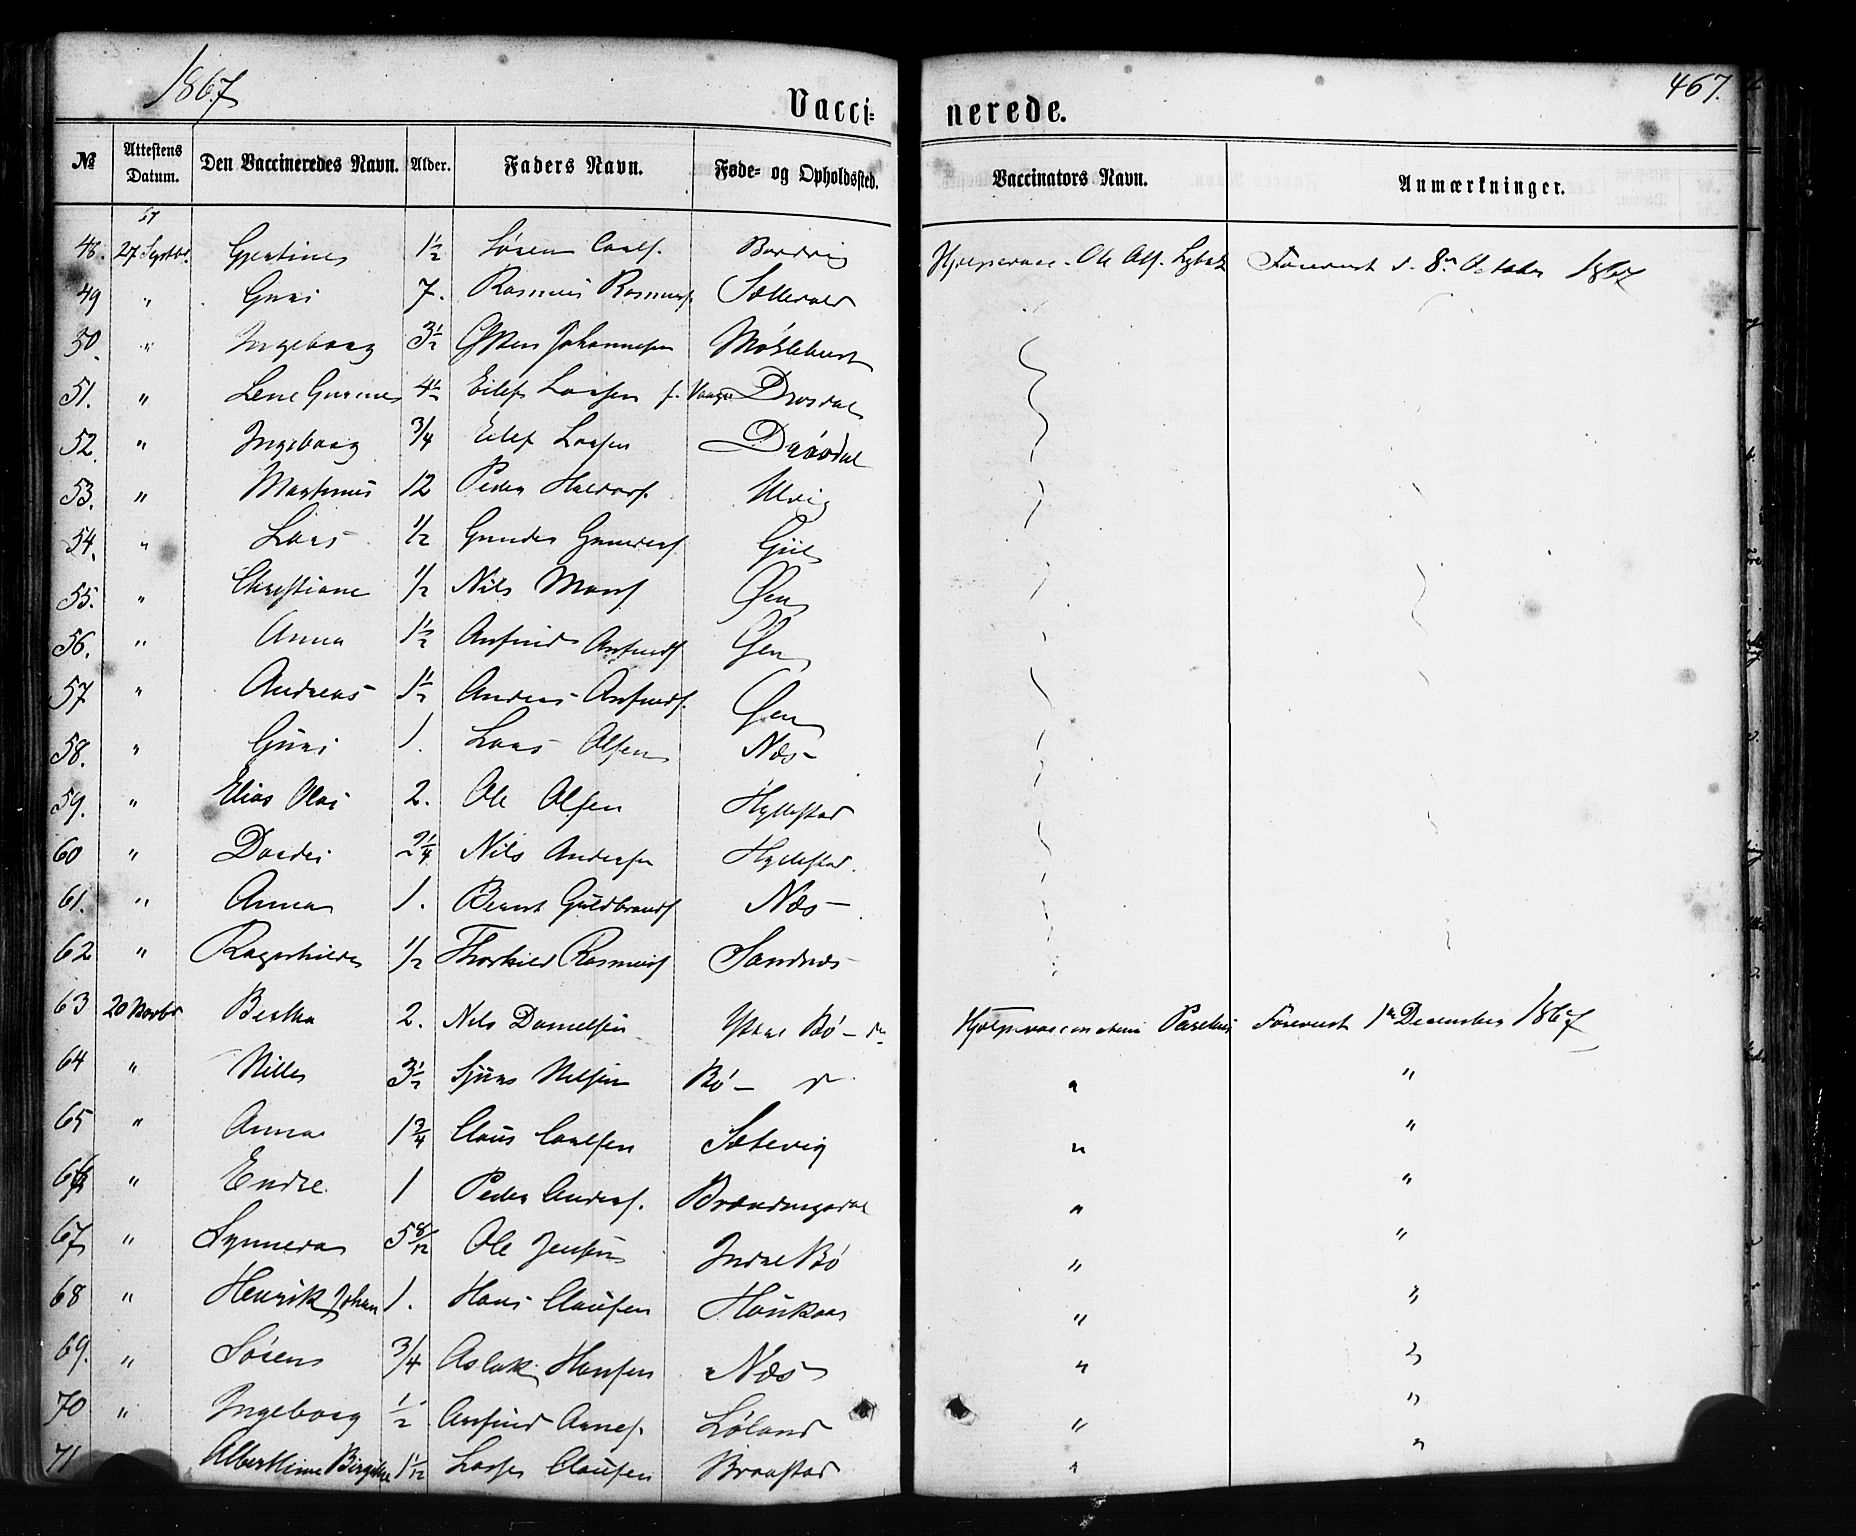 1867
467.
Vacci= nerede.
№ Attestens Datum. Den Vaccineredes Navn. Alder. Faders Navn. Føde- og Opholdssted. Vaccinators Navn. Anmærkninger.
67
48. 27 Septbr. Gjertine 1½ Søren Carls. Ole Ols. Foreevist d. 8de October 1867
49 " Guri 7. Rasmus Rasmuss.
50. " Ingeborg 3½ Johannesen Møklebust
51. " Lene Gurine 4½ Eilef Larsen Drøsdal
52. " Ingeborg 3/4 Eilef Larsen Drøsdal
53. " Martinus 12 Peder Haldors.
54. " Lars 1/2 Gunder Gunders.
55. " Christiane 1/2 Nils Mons. Øen
56. " Anna 1½ Anfind Anfinds. Øen
57 " Andreas 1½ Anders Anfinds. Øen
58. " Guri 1. Lars Olsen Næs
59. " Elias Olai 2. Ole Olsen Hyllestad
60 " Dordei 2¼ Nils Andersen Hyllestad.
61. " Anna 1. Bernt Guldbrands. Næs
62 " Ragnhilda 1/2 Thorkild Rasmuss. Sandnæs
63 20 Novbr Bertha 2. Nils Danielsen Ytre Bø Hjelpevaccinateur Foreevist 1te December 1867
64 " Nille 3½ Sjurs Nilsen Bø " "
65 " Anna 1¾ Claus Carlsen Sætevig " "
66 " Endre 1 Peder Anders. Brændingsdal " "
67 " Synneva 5 8/12 Ole Jensen Indre Bø " "
68 " Henrik Johan 1. Hans Clausen Houkaas " "
69. " Søren 3/4 Aslak Hansen Næs " "
70 " Ingeborg 1/2 Anfind Arnes. Løland " "
71 Alberthine Birgithe 1 1/12 Lasse Clausen Braastad " "